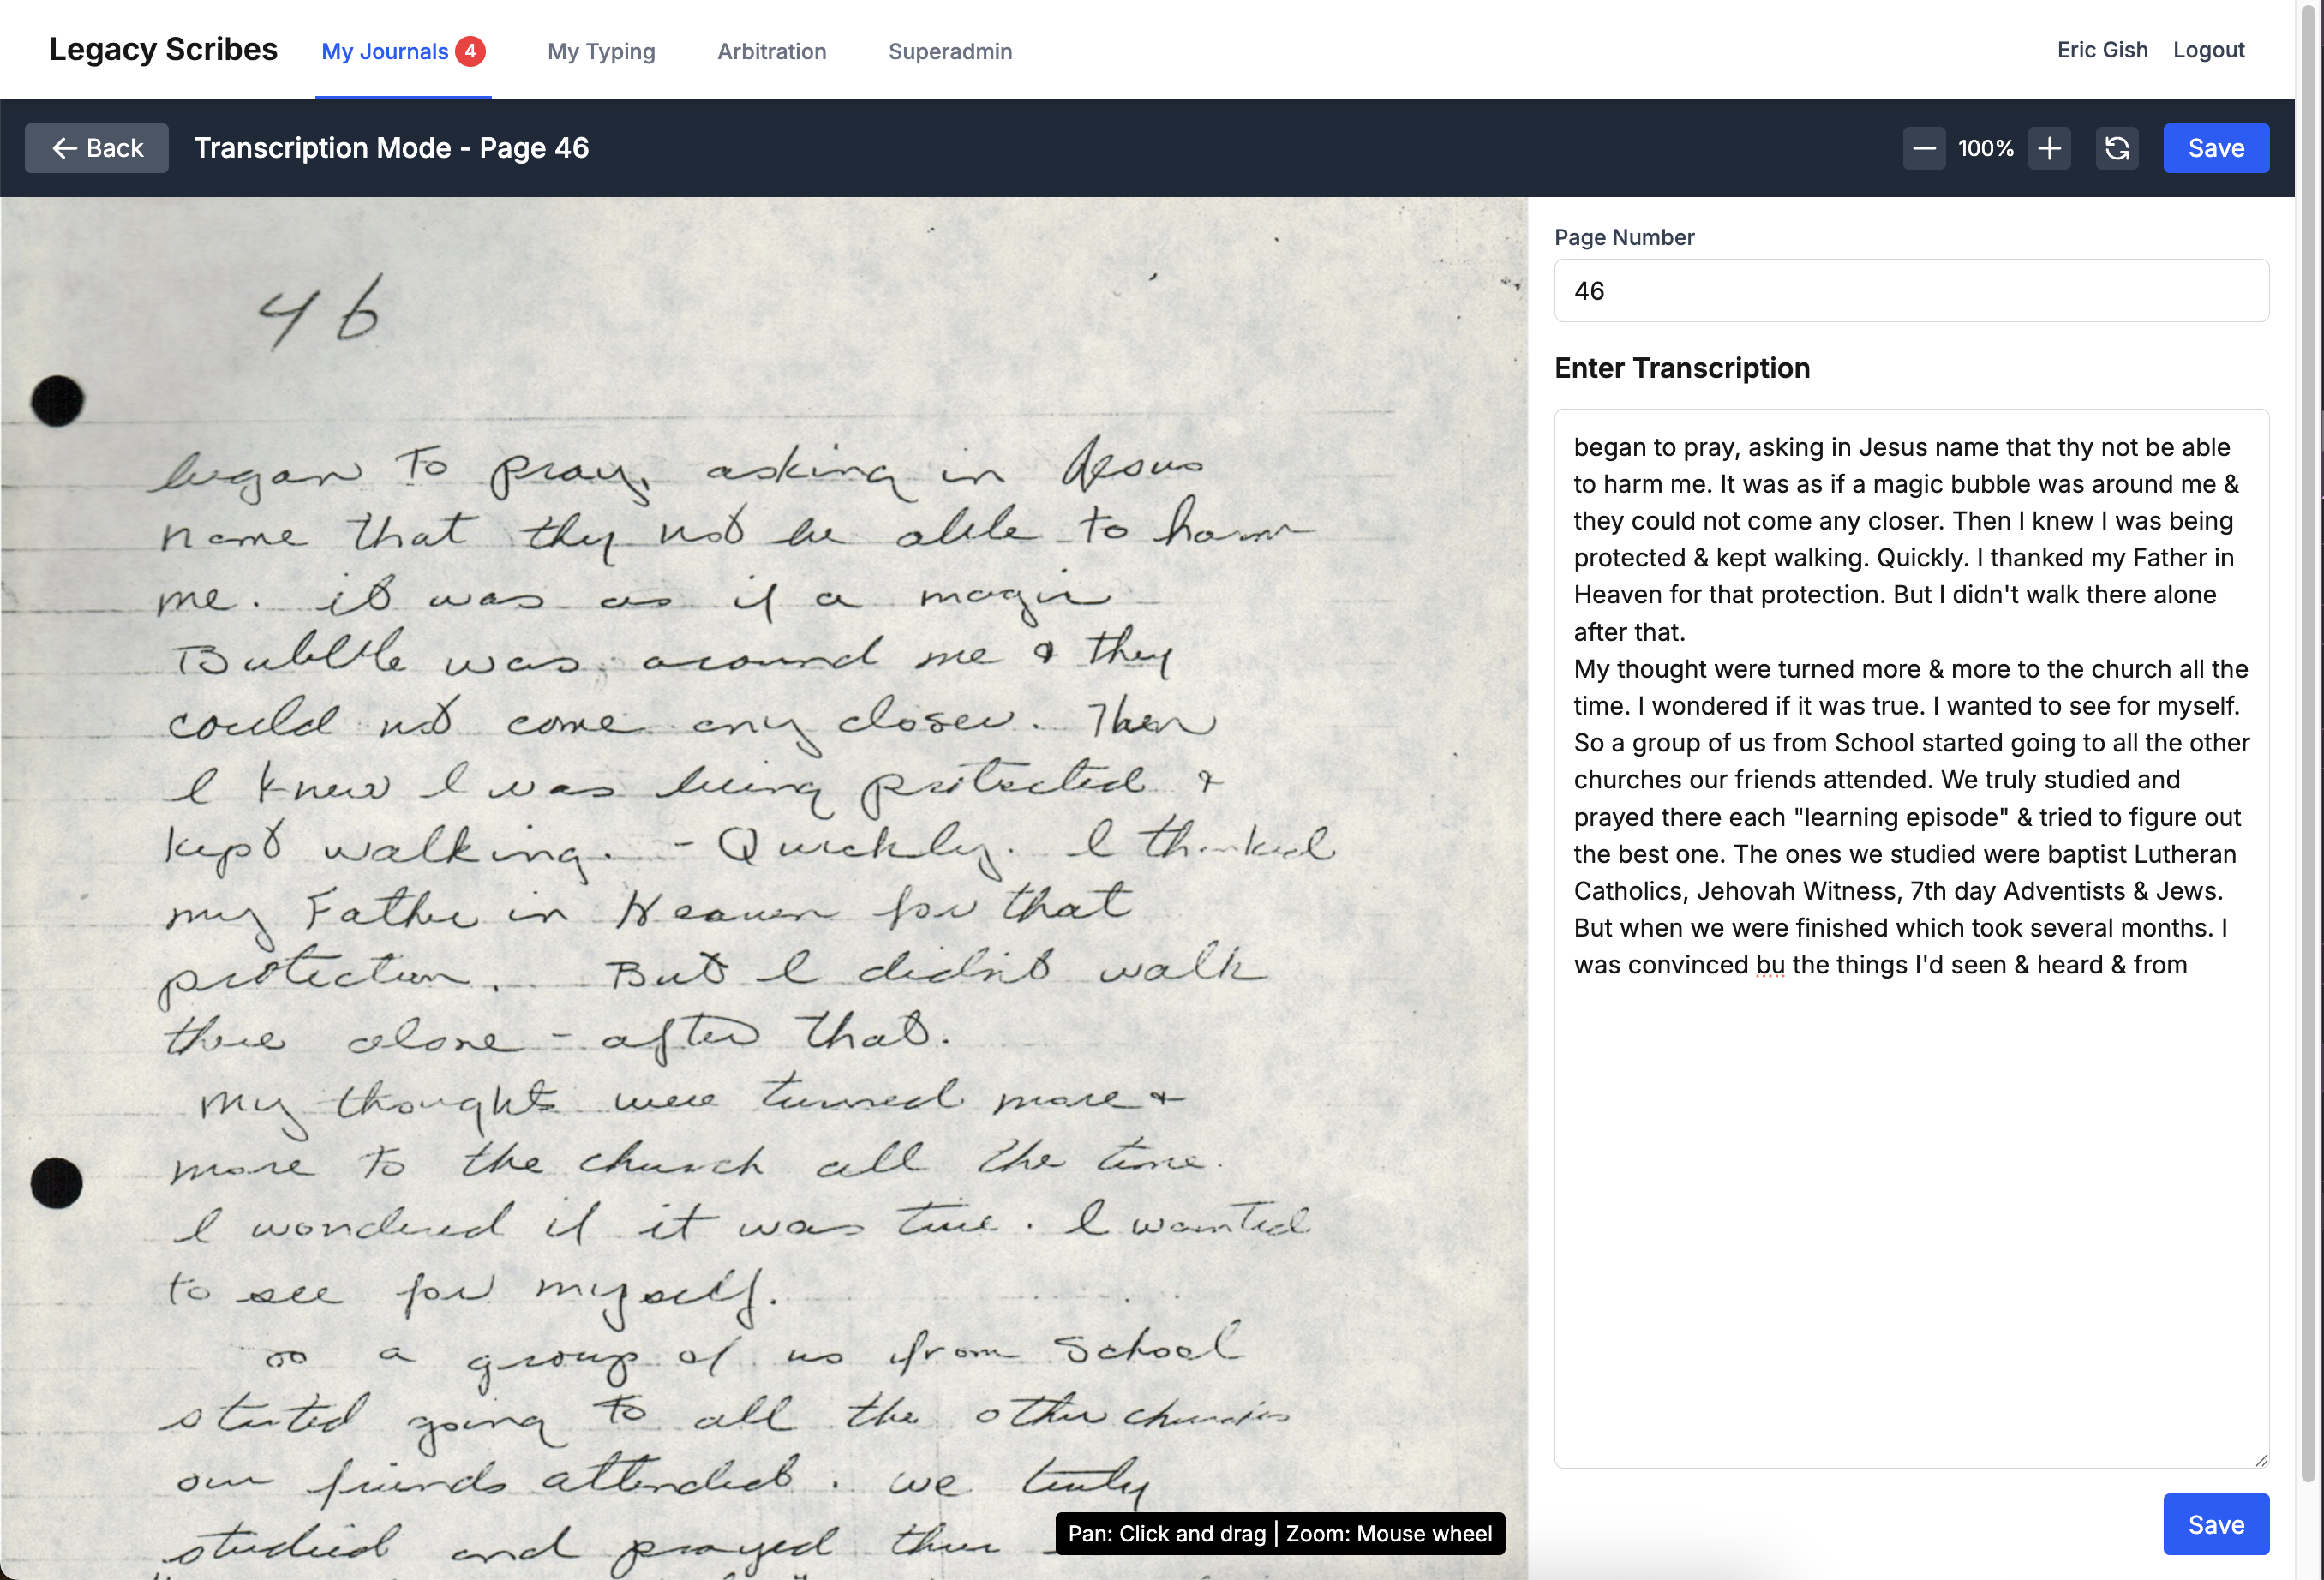 Legacy Scribes
My Journals 4
My Typing
Arbitration
Superadmin
Eric Gish
Logout
Back
Transcription Mode - Page 46
100%
Save
46
began to pray, asking in Jesus
name that thy not be able to harm
me. it was as if a magic
Bubble was around me & they
could not come any closer. Then
I knew I was being protected &
kept walking. - Quickly. I thanked
my Father in Heaven for that
protection. But I didn't walk
there alone - after that.
my thoughts were turned more &
more to the church all the time.
I wondered if it was true. I wanted
to see for myself.
so a group of us from School
started going to all the other churches
our friends attended. we truly
studied and prayed there
Pan: Click and drag | Zoom: Mouse wheel
Page Number
46
Enter Transcription
began to pray, asking in Jesus name that thy not be able
to harm me. It was as if a magic bubble was around me &
they could not come any closer. Then I knew I was being
protected & kept walking. Quickly. I thanked my Father in
Heaven for that protection. But I didn't walk there alone
after that.
My thought were turned more & more to the church all the
time. I wondered if it was true. I wanted to see for myself.
So a group of us from School started going to all the other
churches our friends attended. We truly studied and
prayed there each "learning episode" & tried to figure out
the best one. The ones we studied were baptist Lutheran
Catholics, Jehovah Witness, 7th day Adventists & Jews.
But when we were finished which took several months. I
was convinced bu the things I'd seen & heard & from
Save